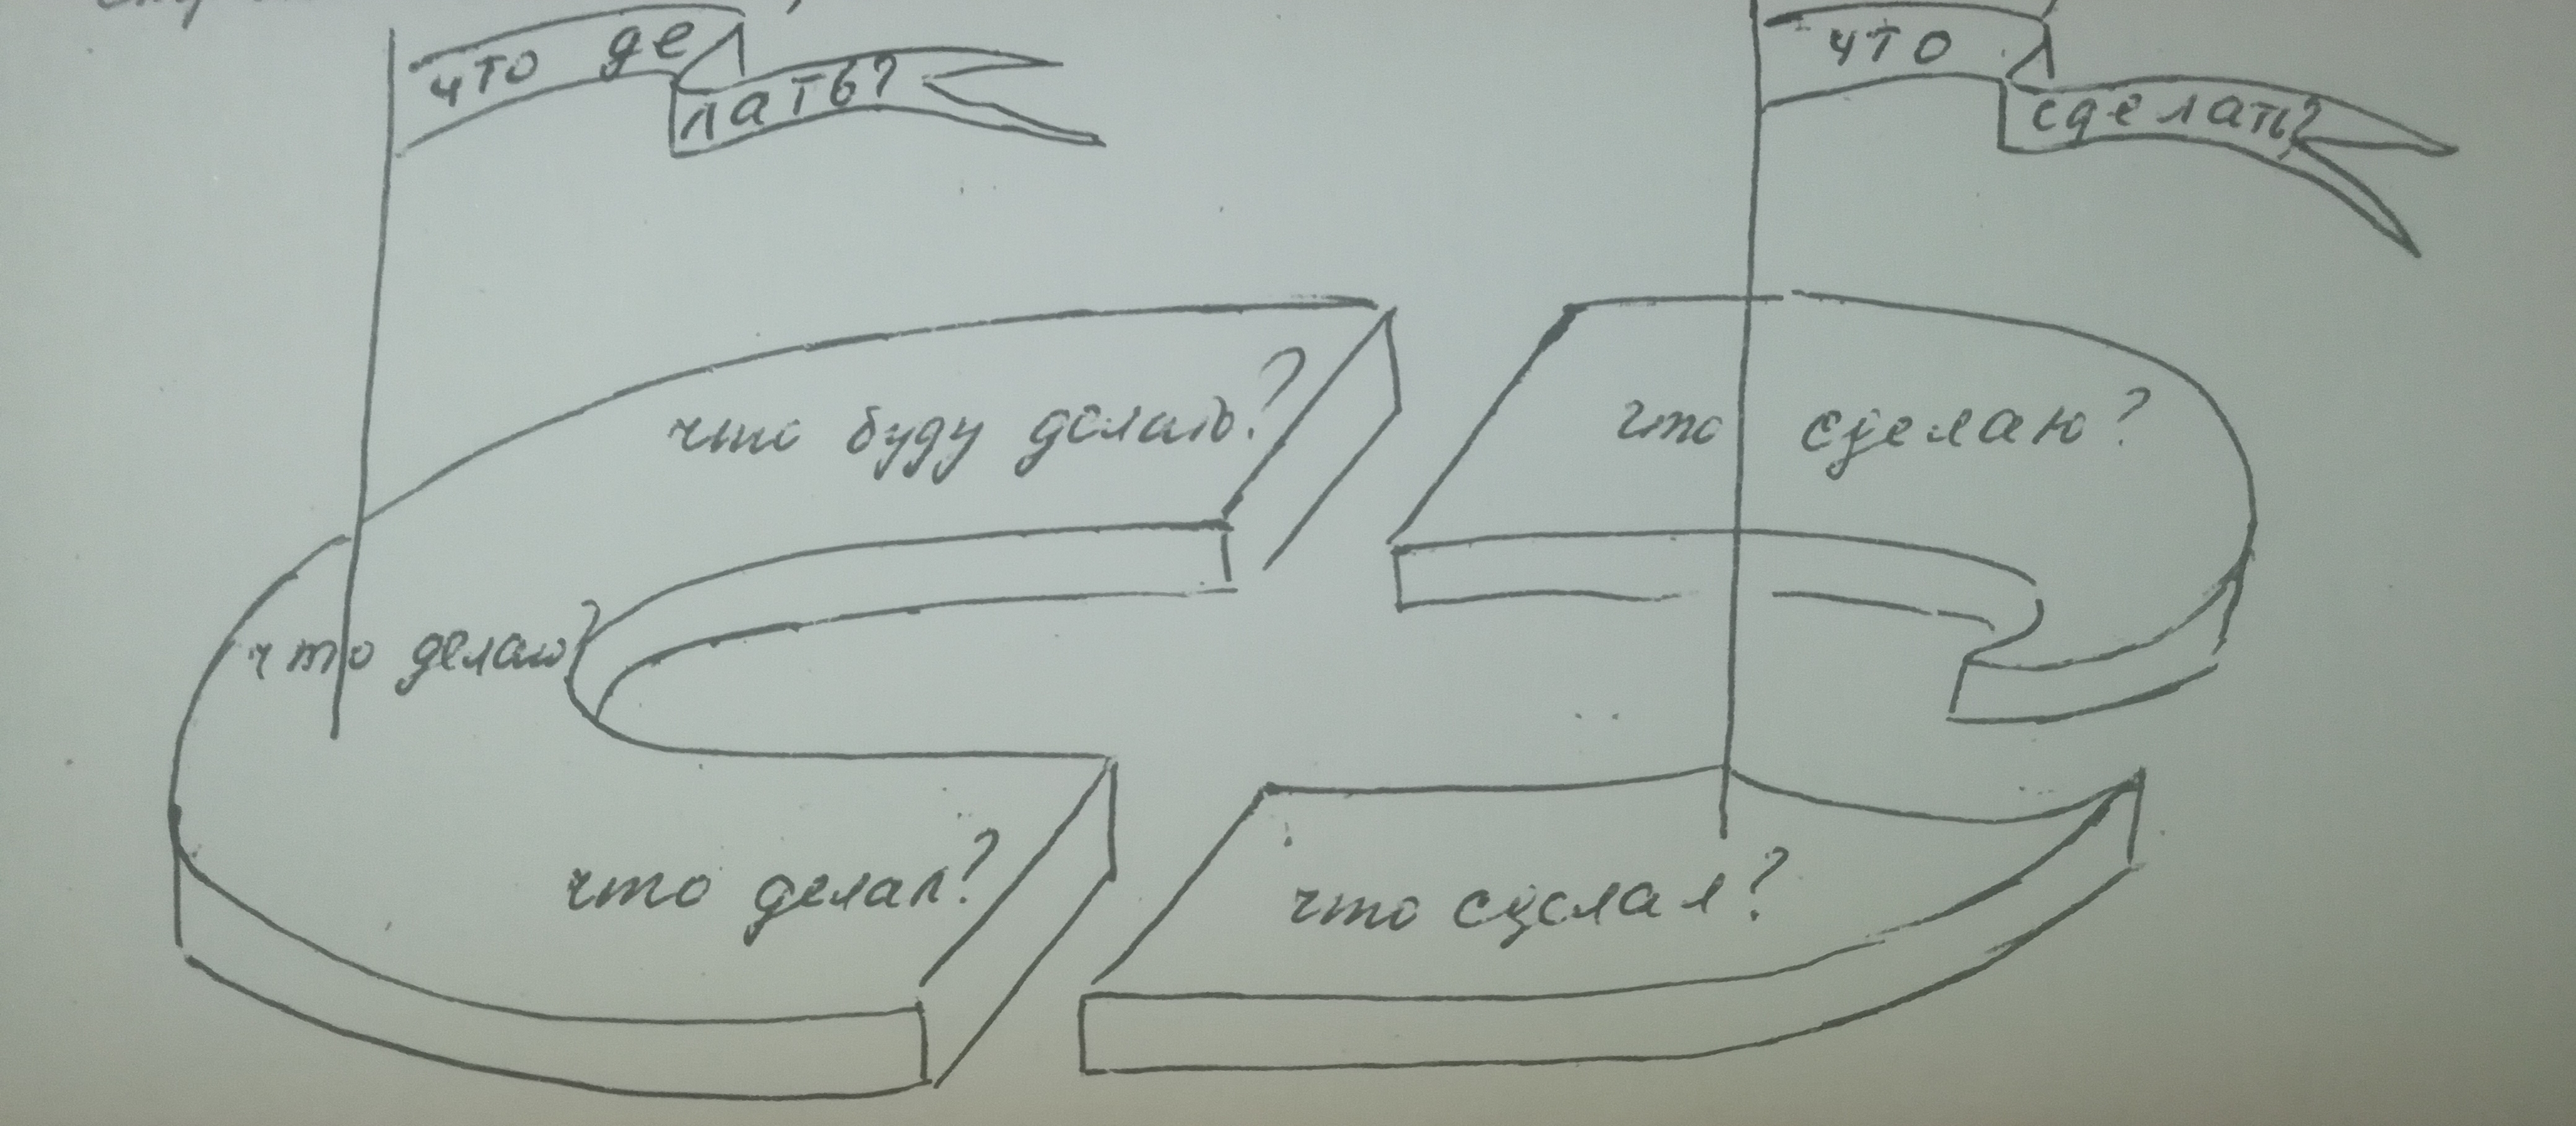 что де
лать?
что
сделать?
что буду делать?
что сделаю?
что делаю?
что делал?
что сделал?